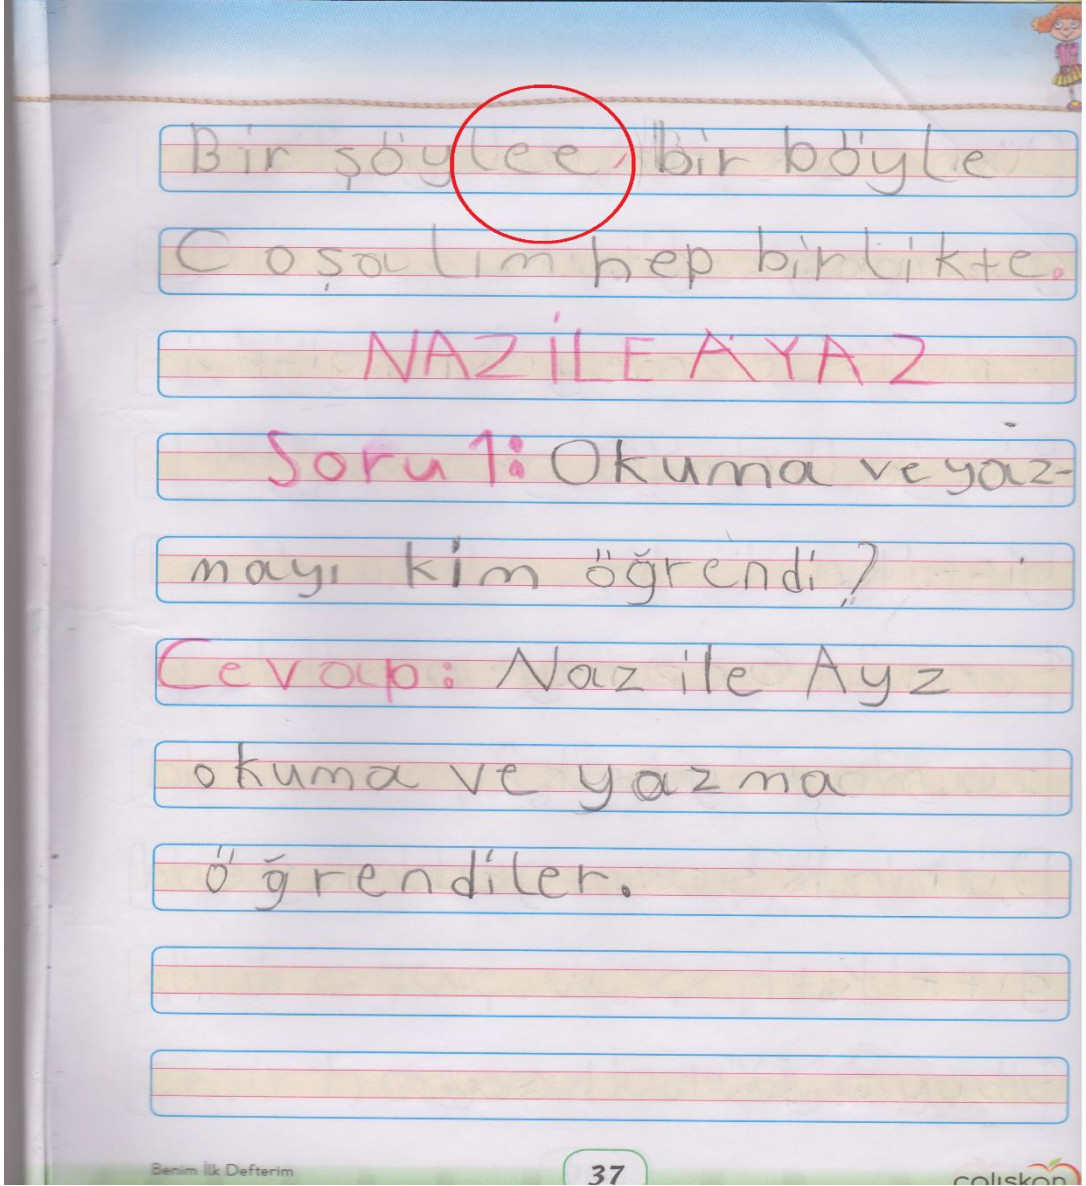 Bir şöylee, bir böyle
Coşalım hep birlikte.
NAZ İLE AYAZ
Soru 1: Okuma ve yaz-
mayı kim öğrendi?
Cevap: Naz ile Ayz
okuma ve yazma
öğrendiler.
Benim İlk Defterim
37
çalışkan